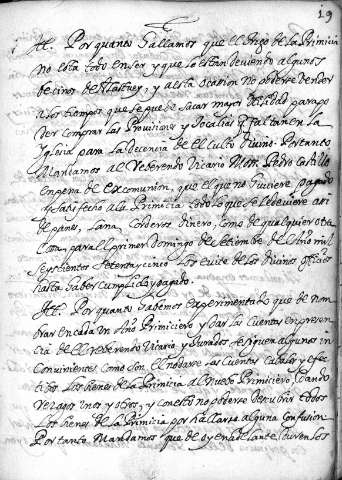 19
Itt. Por quanto hallamos que el trigo de la Primicia
no esta todo en ser y que lo estan deviendo algunos
vecinos de, y a esta ocasion no poderse vender
a los tiempos que se puede sacar mayor utilidad para po
der comprar las Provisiones y Jocalias q faltan en la
Yglesia para la decencia de el Culto Divino. Por tanto
Mandamos al Reverendo Vicario Mossn. Pedro Castillo
en pena de excomunion, que el que no huviere pagado
y satisfecho a la Primicia todo lo que se le deviere asi
de panes, Lana, Corderos dinero, como de qualquier otra
cosa, para el primer Domingo de Setiembre del Año mil
seyscientos setenta y cinco los evite de los divinos officios
hasta haber cumplido y pagado.
Itt. Por quanto habemos experimentado que de nom
brar en cada un Año Primiciero y dar las Cuentas en presen
cia de el Reverendo Vicario y Jurados se siguen algunos in
convinientes como son el no darse las Cuentas cabales y efec
tivos los bienes de la Primicia al nuevo Primiciero, dando
unos y otros, y con esto no poderse descubrir todos
los bienes de la Primicia por hallarse alguna confusion
Por tanto Mandamos que de oy en adelante los